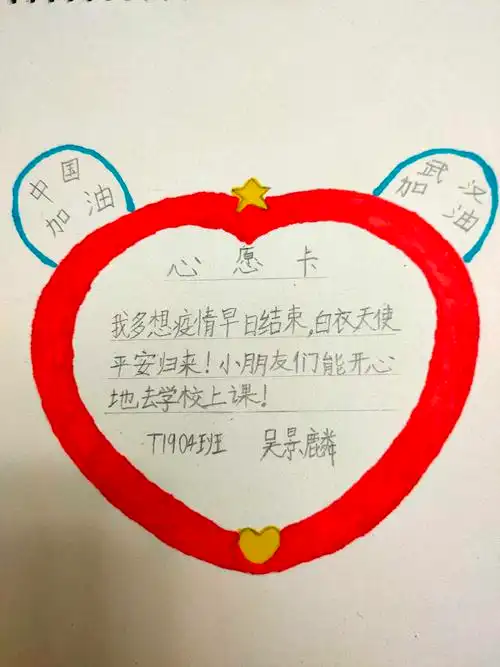 中国
加油
武汉
加油
心愿卡
我多想疫情早日结束,白衣天使
平安归来!小朋友们能开心
地去学校上课!
T1904班 吴景麟